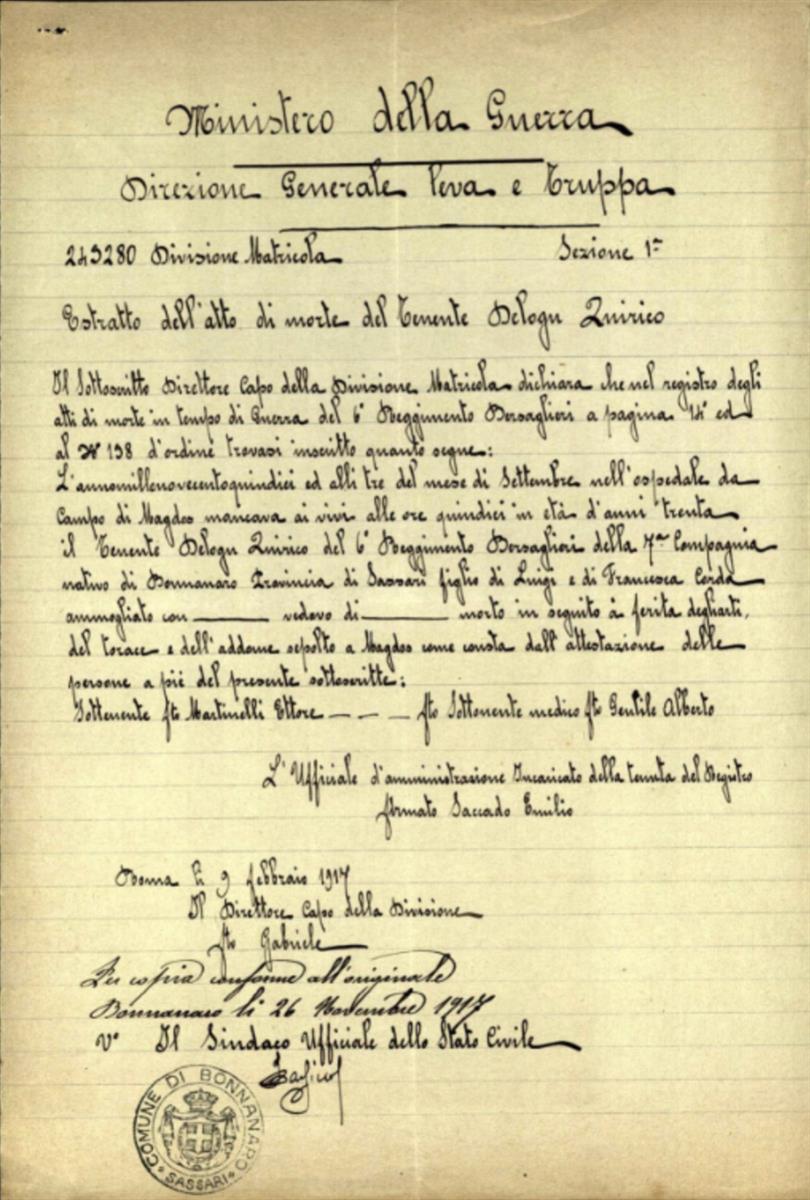 Ministero della Guerra
Direzione Generale leva e Truppa
243280 Divisione Matricola Sezione 1ª
Estratto dell'atto di morte del Tenente Delogu Quirico
Il Sottoscritto Direttore Capo della Divisione Matricola dichiara che nel registro degli
atti di morte in tempo di Guerra del 6° Reggimento Bersaglieri a pagina 14° ed
al N° 138 d'ordine trovasi inscritto quanto segue:
L'annomillenovecentoquindici ed alli tre del mese di Settembre nell'ospedale da
Campo di Magdos mancava ai vivi alle ore quindici in età d'anni trenta
il Tenente Delogu Quirico del 6° Reggimento Bersaglieri della 7ª Compagnia
nativo di Bonnanaro Provincia di Sassari figlio di Luigi e di Francesca Corda
ammogliato con ______ vedovo di ______ morto in seguito à ferita degliarti,
del torace e dell'addome sepolto a Magdos come consta dall'attestazione delle
persone a piè del presente sottoscritte:
Sottenente fto Martinelli Ettore — — — fto Sottonente medico fto Gentile Alberto
L'Ufficiale d'amministrazione Incaricato della tenuta del Registro
firmato Saccado Emilio
Roma li 9 febbraio 1917
Il Direttore Capo della Divisione
fto Gabriele
Per copia conforme all'originale
Bonnanaro li 26 Novembre 1917
V° Il Sindaco Ufficiale dello Stato Civile
COMUNE DI BONNANARO
SASSARI